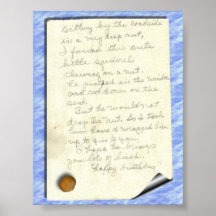 Sitting by the roadside
in a very deep rut,
I found this cute
little squirrel
chewing on a nut.
He jumped in the window
and sat down on the
seat.
But he would not
drop the nut. So I took
him home & wrapped him
up to give to you.
I hope he brings
you lots of luck.
Happy birthday